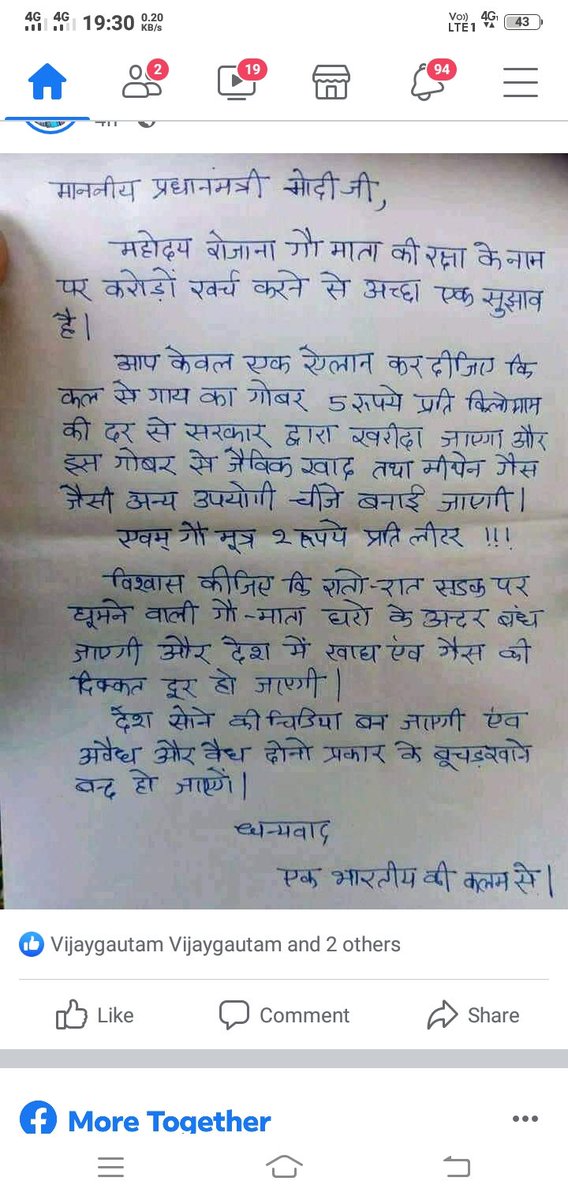 4G 4G 19:30 0.20 KB/s Vo) LTE1 4G 43
2 19 94
माननीय प्रधानमंत्री मोदी जी,
महोदय रोजाना गौ माता की रक्षा के नाम
पर करोड़ों खर्च करने से अच्छा एक सुझाव
है।
आप केवल एक ऐलान कर दीजिए कि
कल से गाय का गोबर 5 रुपये प्रति किलोग्राम
की दर से सरकार द्वारा खरीदा जाएगा और
इस गोबर से जैविक खाद तथा मीथेन गैस
जैसी अन्य उपयोगी चीजे बनाई जाएगी।
एवम् गौ मूत्र 2 रूपये प्रति लीटर !!!
विश्वास कीजिए कि रातो-रात सडक पर
घूमने वाली गौ-माता घरो के अन्दर बंध
जाएगी और देश में खाद्य एंव गैस की
दिक्कत दूर हो जाएगी।
देश सोने की चिडिया बन जाएगी एंव
अवैध और वैध दोनो प्रकार के बूचड़खाने
बन्द हो जाएगें।
धन्यवाद
एक भारतीय की कलम से।
Vijaygautam Vijaygautam and 2 others
Like Comment Share
More Together